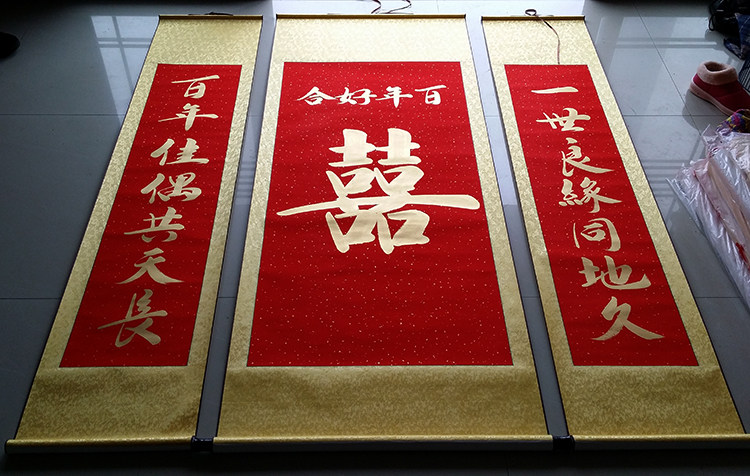 一世良緣同地久
百年好合
囍
百年佳偶共天長